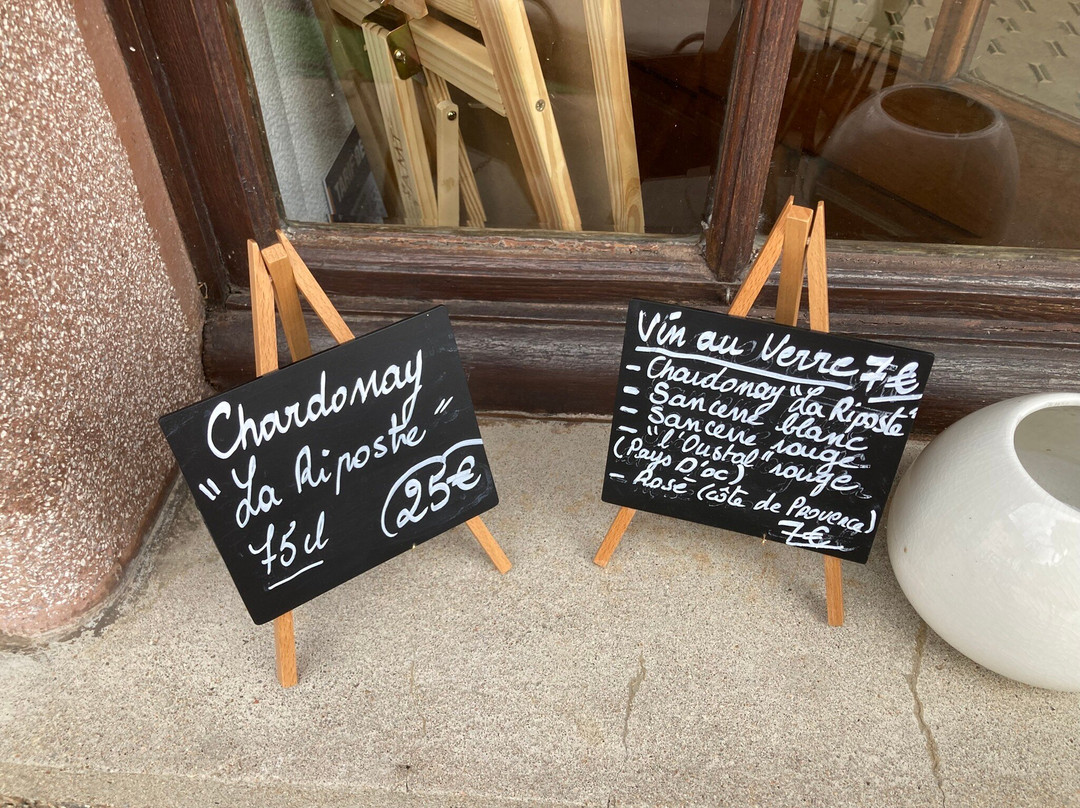 Chardonnay
"La Riposte"
75cl
25€
Vin au Verre 7€
- Chardonay "La Riposte"
- Sancerre blanc
- Sancerre rouge
- "l'Oustal" rouge
(Pays D'oc)
- Rosé (côte de Provence)
7€